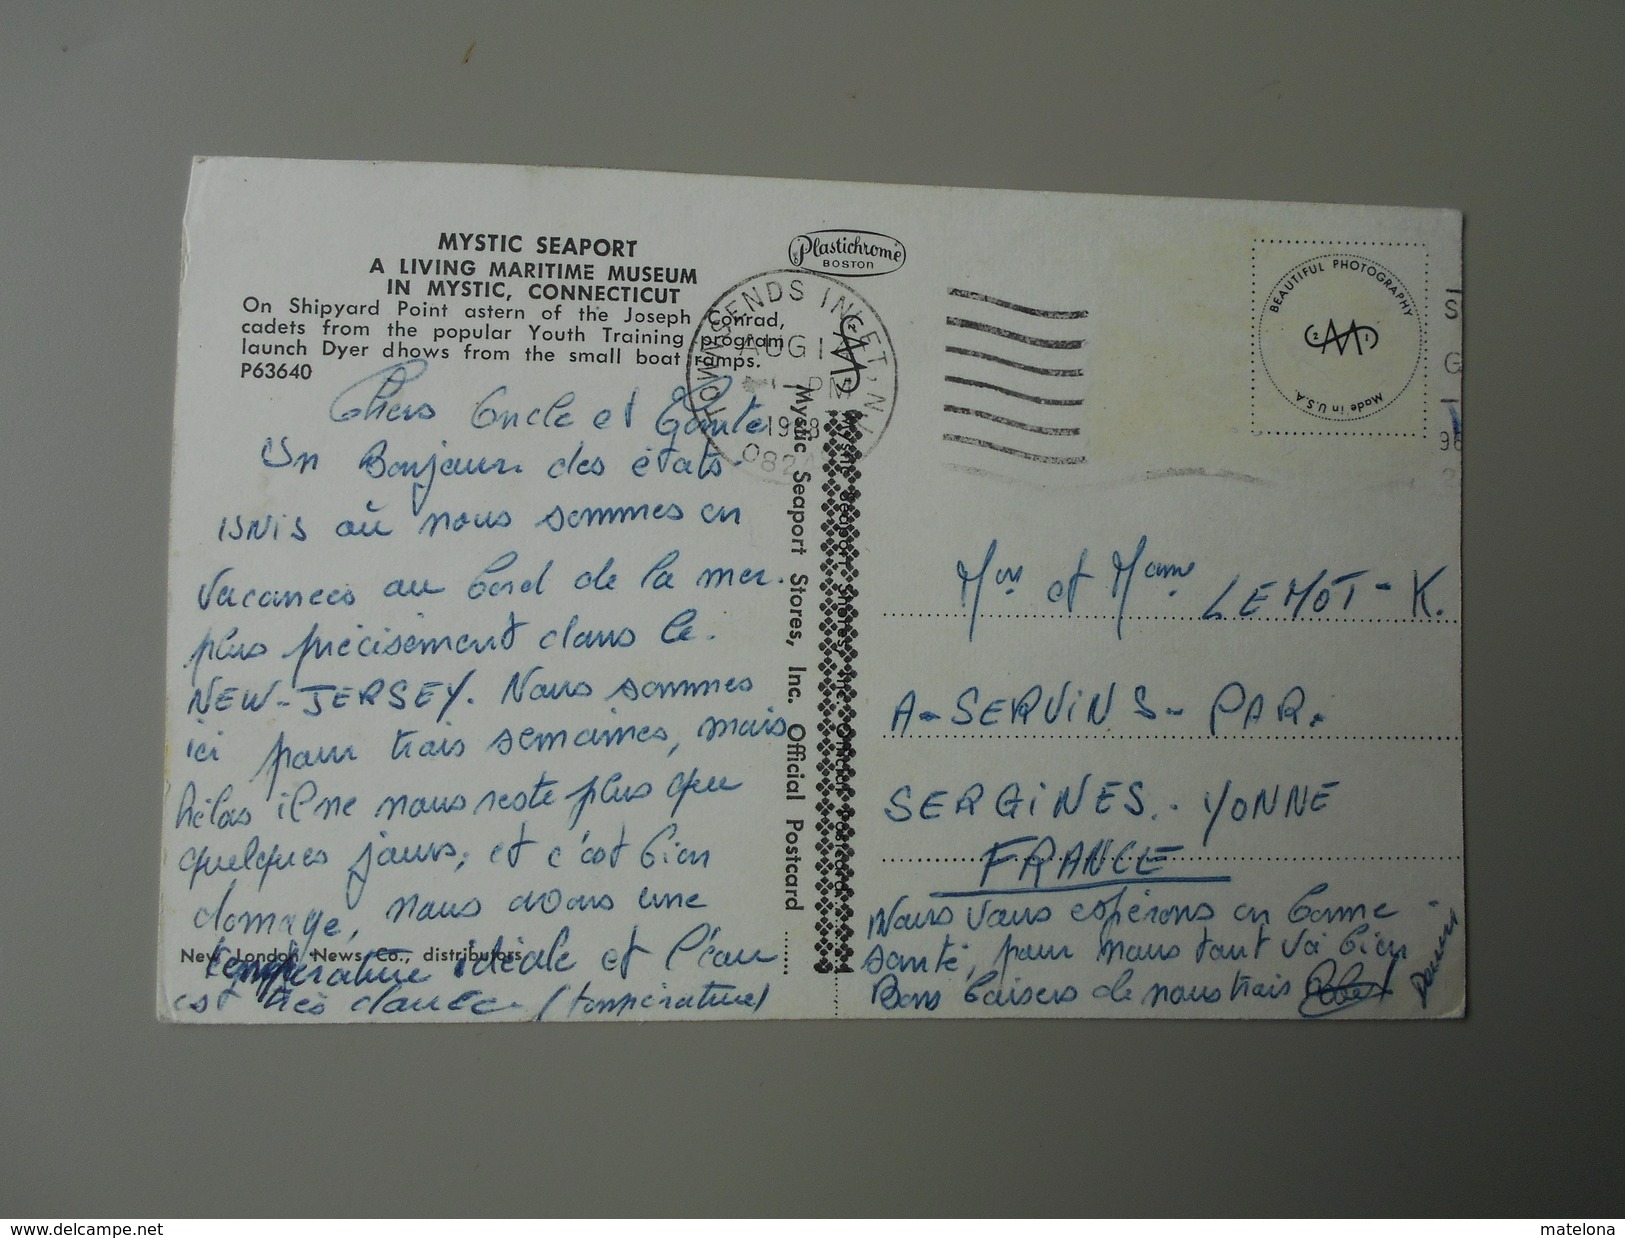 MYSTIC SEAPORT
A LIVING MARITIME MUSEUM
IN MYSTIC, CONNECTICUT
On Shipyard Point astern of the Joseph Conrad,
cadets from the popular Youth Training program
launch Dyer dhows from the small boat ramps.
P63640
Chers Oncle et Tante
Un Bonjour des états-
UNIS où nous sommes en
vacances au bord de la mer.
plus précisément dans le.
NEW-JERSEY. Nous sommes
ici pour trois semaines, mais
hélas il ne nous reste plus que
quelques jours, et c'est bien
domage, nous avons une
température idéale et l'eau
est très douce (température)
New London News Co., distributors
Plastichrome
BOSTON
TOWNSENDS INLET, NJ
AUG 1
PM
082
Mystic Seaport Stores, Inc. Official Postcard
Mystic Seaport Stores, Inc. Official Postcard
BEAUTIFUL PHOTOGRAPHY
Made in U.S.A.
Mon et Mame LEMOT-K.
A-SERVINS-PAR.
SERGINES.-YONNE
FRANCE
Nous vous espérons en bonne
santé, pour nous tout va bien
Bons baisers de nous trois
www.delcampe.net
matelona